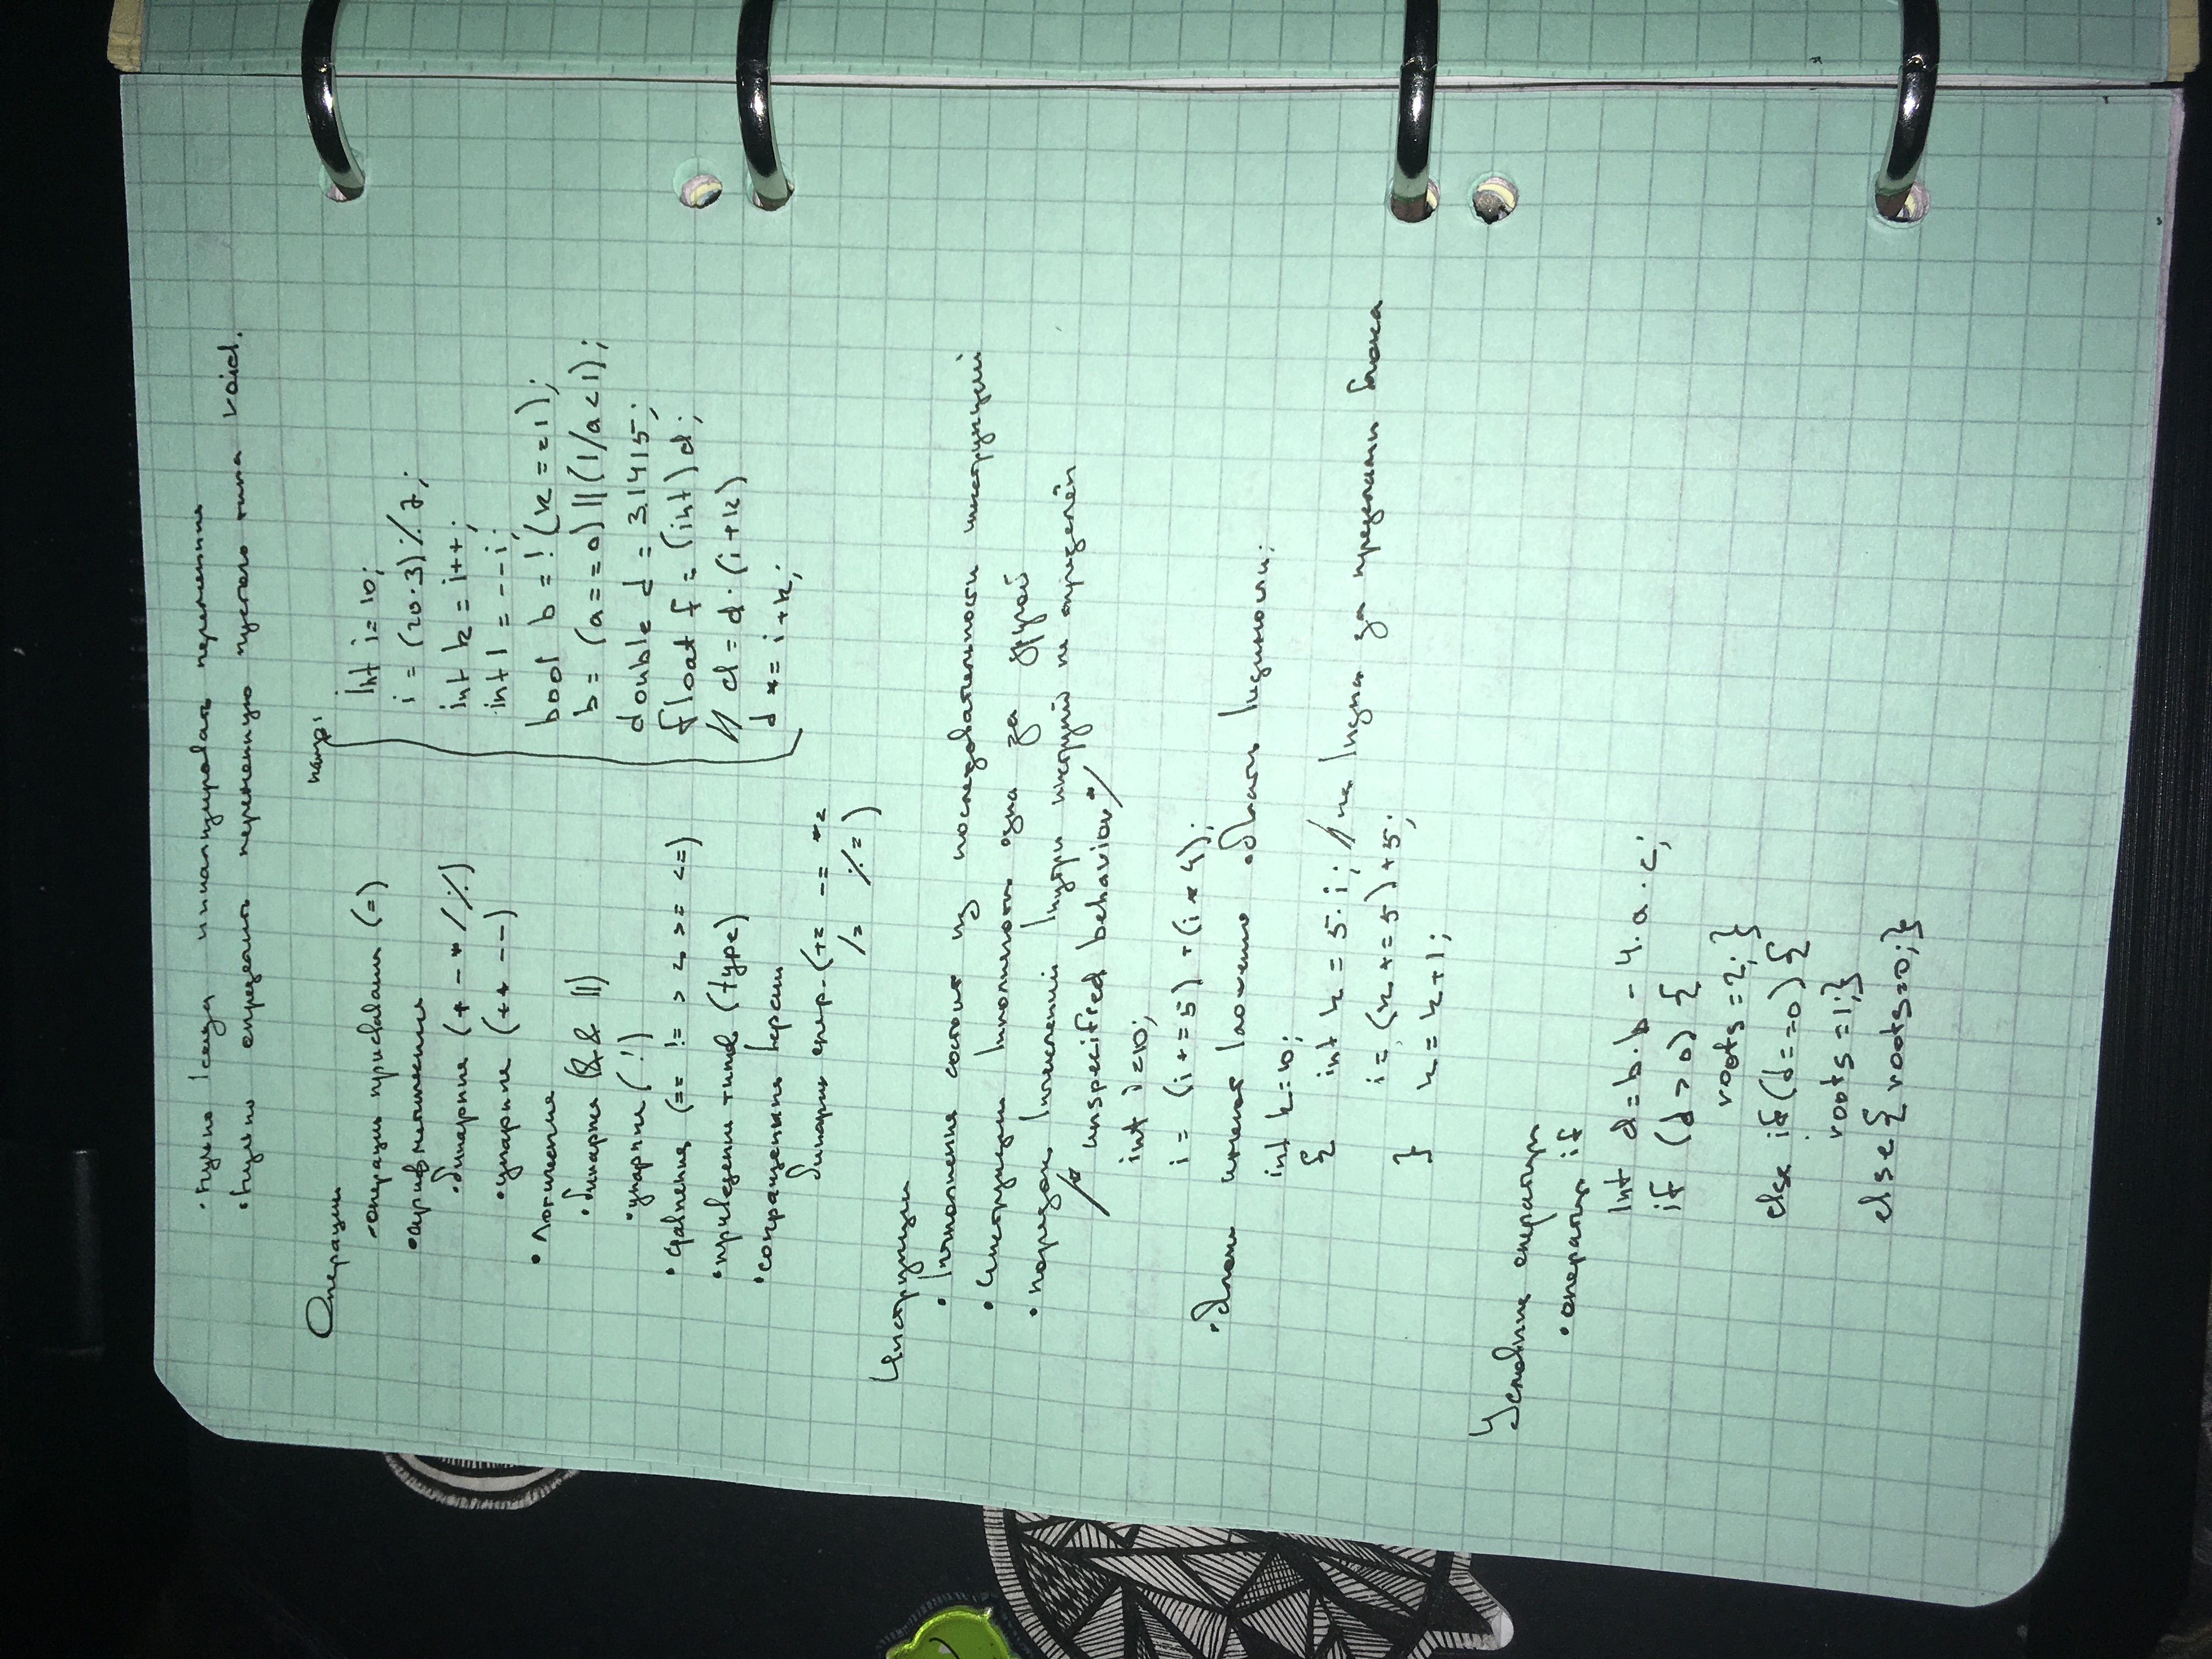 • Нужно всегда инициализировать переменные
• Нужно определить переменную пустого типа void.
Операции
• операция присваивания (=)
• арифметические
• бинарные (+ - * / %)
• унарные (++ --)
• логические
• бинарные (&& ||)
• унарные (!)
• сравнения (== != > < >= <=)
• приведения типов (type)
• сокращенные версии
бинарных опер. (+= -= *=
/= %=)
напр:
int i = 10;
i = (20·3) % 7;
int k = i++;
int l = --i;
bool b = !(k == 1);
b = (a == 0) || (1/a < 1);
double d = 3.1415;
float f = (int) d;
// d = d · (i+k)
d *= i+k;
Инструкции
• Выполнение состоит из последовательности инструкций
• инструкции выполняются одна за другой
• порядок вычислений внутри инструкций не определён
/* unspecified behavior */
int i = 10;
i = (i += 5) + (i * 4);
• блоки имеют вложенную область видимости;
int k = 10;
{ int k = 5·i; // не видна за пределами блока
i = (k += 5) + 5;
} k = k+1;
Условные операторы
• оператор if
int d = b·b - 4·a·c;
if (d > 0) {
roots = 2; }
else if (d == 0) {
roots = 1; }
else { roots = 0; }